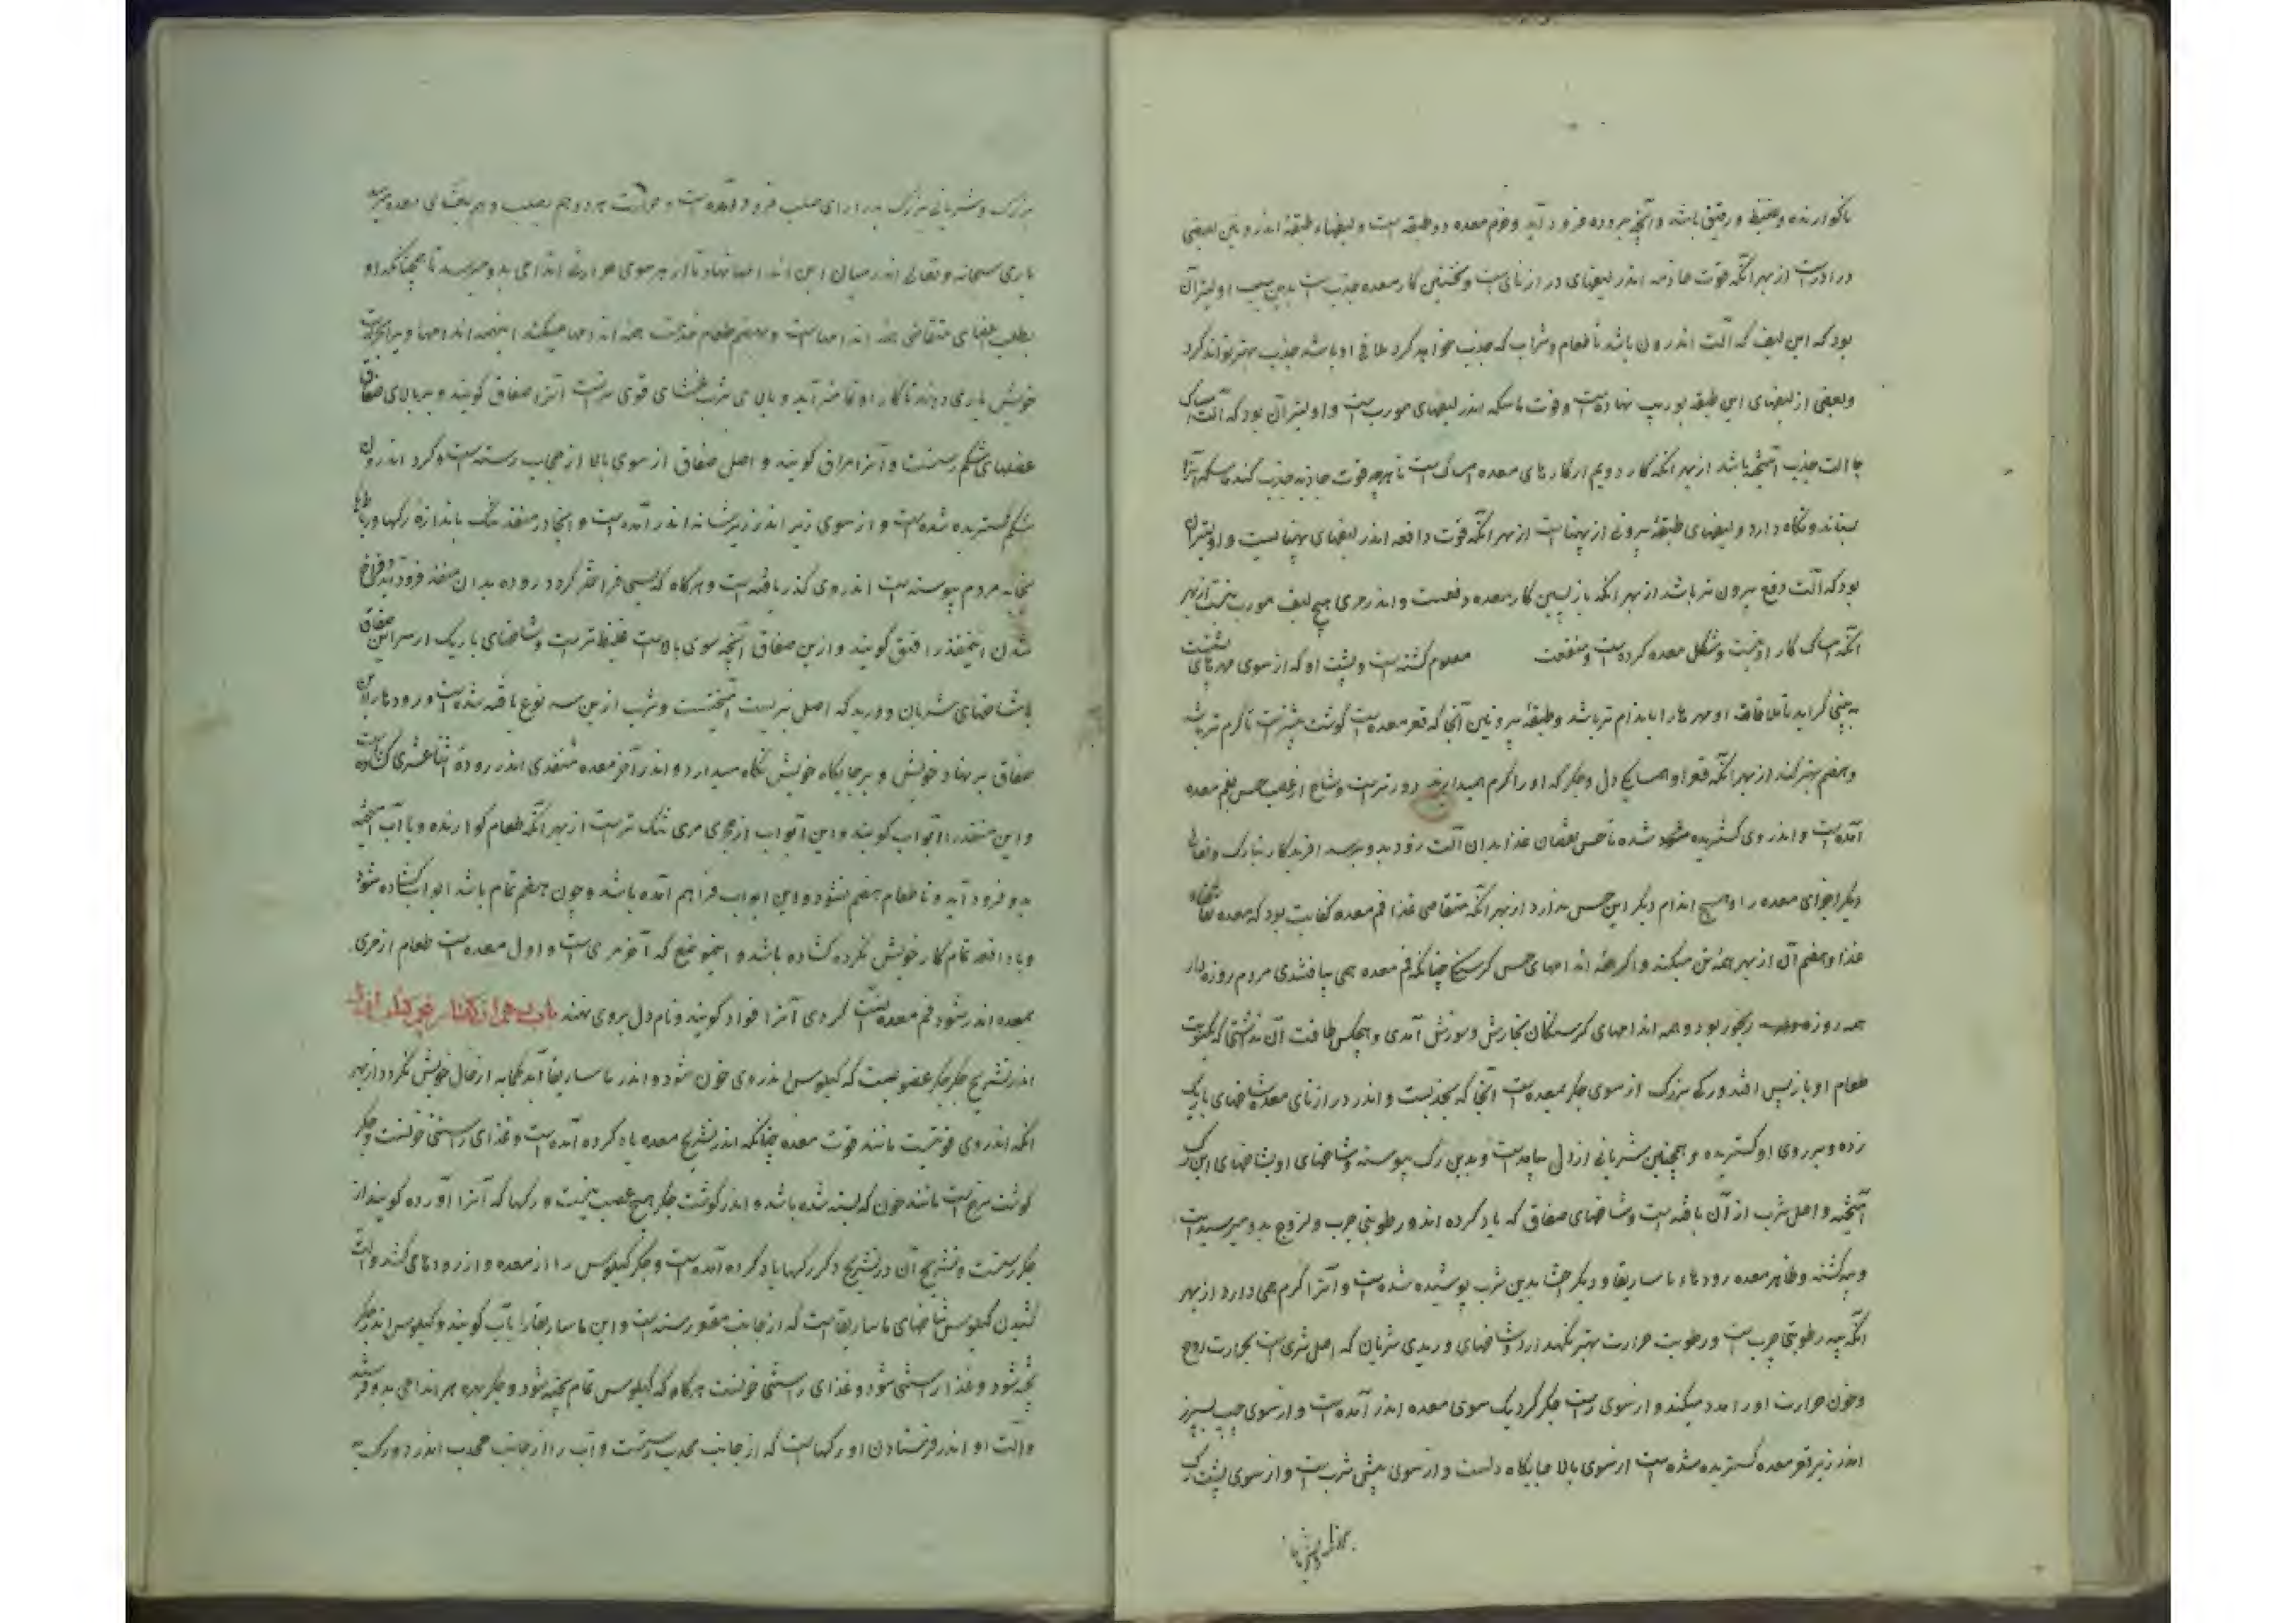 ناگوارنده و غلیظ و رقیق باشد و آنچه بروده فرود آید و جرم معده دو طبقه است و لیفهاء طبقهٔ اندرونین بعضی
در ازاست از بهر آنکه قوت جاذبه اندر لیفهای درازنای است و نخستین کار معده جذب است بدین سبب اولیتر آن
بود که این لیف که آلت اندرون باشد تا طعام و شراب که جذب خواهد کرد ملاقی او باشد جذب بهتر تواند کرد
و بعضی از لیفهای این طبقه بوریب نهاده است و قوت ماسکه اندر لیفهای مورب است و اولیتر آن بود که آلت امساک
با آلت جذب آمیخته باشد از بهر آنکه کار دویم از کارهای معده امساک است تا هرچه قوت جاذبه جذب کند ماسکه آنرا
بستاند و نگاه دارد و لیفهای طبقهٔ بیرونی از پهناست از بهر آنکه قوت دافعه اندر لیفهای پهناییست و اولیتر آن
بود که آلت دفع بیرون تر باشد از بهر آنکه بازپسین کار معده دفعست و اندر مری هیچ لیف مورب نیست از بهر
آنکه امساک کار او نیست و شکل معده کرده است و منفعت معلوم گشته است و پشت او که از سوی مهرهای پشتست
به پهنی گراید تا ملاقات او مهرها را باندام تر باشد و طبقهٔ بیرونین آنجا که قعر معده است گوشت بیشترست تا گرم تر باشد
و هضم بهتر کند از بهر آنکه قعر او از همسایگی دل و جگر که او را گرم همیدارند دورترست و شاخ از عصب حس بفم معده
آمده است و اندر وی گسترده شده تا حس نقصان غذا بدان آلت زود بدو برسد آفریدگار تبارک و تعالی
دیگر اجزای معده را و هیچ اندام دیگر این حس نداد از بهر آنکه متقاضی غذا فم معده کفایت بود که معده تقاضاء
غذا و هضم آن از بهر همه تن میکند و اگر همه اندامهای حس گرسنگی چنانکه فم معده همی یافتندی مردم روزه دار
همه روزه رنجور بود و همه اندامهای گرسنگان بخارش و سوزش آمدی و هیچکس طاقت آن نداشتی که یکوقت
طعام او بازپس افتد و رگی بزرگ از سوی جگر بمعده است آنجا که و اندر درازنای معده شاخهای باریک
زده و بر روی او گسترده و همچنین شریانی از دل بیامدست و بدین رگ پیوسته و شاخهای او بشاخهای این رگ
آمیخته و اصل ثرب از آن بافته است و شاخهای صفاق که یاد کرده اند و رطوبتی چرب و لزوج بدو میرسیده است
و پیه گشته و ظاهر معده رودها و ماساریقا و دیگر احشا بدین ثرب پوشیده شده است و آنرا گرم همی دارد از بهر
آنکه پیه رطوبتی چرب است و رطوبت حرارت بهتر نگهدارد و شاخهای وریدی شریان که اصل ثرب است بحرارت روح
و خون حرارت او را مدد میکند و از سوی راست جگر گرد یک سوی معده اندر آمده است و از سوی چپ سپرز
اندر زیر قعر معده گسترده شده است از سوی بالا جایگاه دلست و از سوی پیش ثرب است و از سوی پشت رگ
بزرگ و شریانی بزرگ بدرازای صلب فرود آمده است و حرارت هر دو هم بصلب و هم بقفای معده میرسد
باری سبحانه و تعالی اندر میان این اندامها نهاد تا از هر سوی حرارت اندامی بدو میرسد تا همچنانکه او
بطلب غذای متقاضی همه اندامهاست و بهضم طعام خدمت همه اندامها میکند اینهمه اندامها ویرا بحرارت
خویش یاری دهند تا کار او تمامتر آید و بالای ثرب غشای قوی ترست آنرا صفاق گویند و بر بالای صفاق
عضلهای شکم رستست و آنرا مراق گویند و اصل صفاق از سوی بالا از حجاب رسته است و گرد اندرون
شکم گسترده شده است و از سوی زیر اندر زیر مثانه اندر آمده است و آنجا در منفذ تنگ باندازهٔ رگها و رباطها
بخایه مردم پیوسته است اندر وی گذر یافته است و هرگاه که بسی فراختر گردد روده بدان منفذ فرود آید و فراخ
شدن این منفذ را فتق گویند و از این صفاق آنچه سوی بالاست غلیظ ترست و شاخهای باریک از سر این صفاق
با شاخهای شریان و ورید که اصل ثربست آمیختست و ثرب ازین سه نوع بافته شده است و رودها را این
صفاق بر نهاد خویش و بر جایگاه خویش نگاه میدارد و اندر آخر معده منفذی اندر رودهٔ اثناعشری گشاده است
و این منفذ را بواب گویند و این بواب از مجری مری تنگ ترست از بهر آنکه طعام گوارنده و با آب آمیخته
بدو فرود آید و تا طعام هضم نشود این بواب فراهم آمده باشد و چون هضم تمام باشد بواب گشاده شود
و تا دافعه تمام کار خویش نکرده گشاده باشد و این موضع که آخر مری است و اول معده است طعام از مری
بمعده اندر شود فم معده است گروهی آنرا فواد گویند و نام دل بروی نهند
اندر تشریح جگر جگر عضویست که کیلوس اندر وی خون شود و اندر ماساریقا آندک مایه از حال خویش بگردد از بهر
آنکه اندر وی قوتیست مانند قوت معده چنانکه اندر تشریح معده یاد کرده آمده است و غذای راستی خونست و جگر
گوشت سرخ است مانند خون که بسته شده باشد و اندر گوشت جگر هیچ عصب نیست و رگها که آنرا آورده گویند از
جگر رستست و تشریح آن در تشریح دگر رگها یاد کرده آمده است و جگر کیلوس را از معده و از رودهای کشد و آلت
کشیدن کیلوس شاخهای ماساریقاست که از جانب مقعر رسته است و این ماساریقا را باب گویند و کیلوس اندر جگر
پخته شود و غذا راستی شود و غذای راستی خونست هرگاه که کیلوس تمام پخته شود و جگر بهره هر اندامی بدو فرستد
و آلت او اندر فرستادن او رگهاست که از جانب محدب رستست و آب را از جانب محدب اندر دو رگ